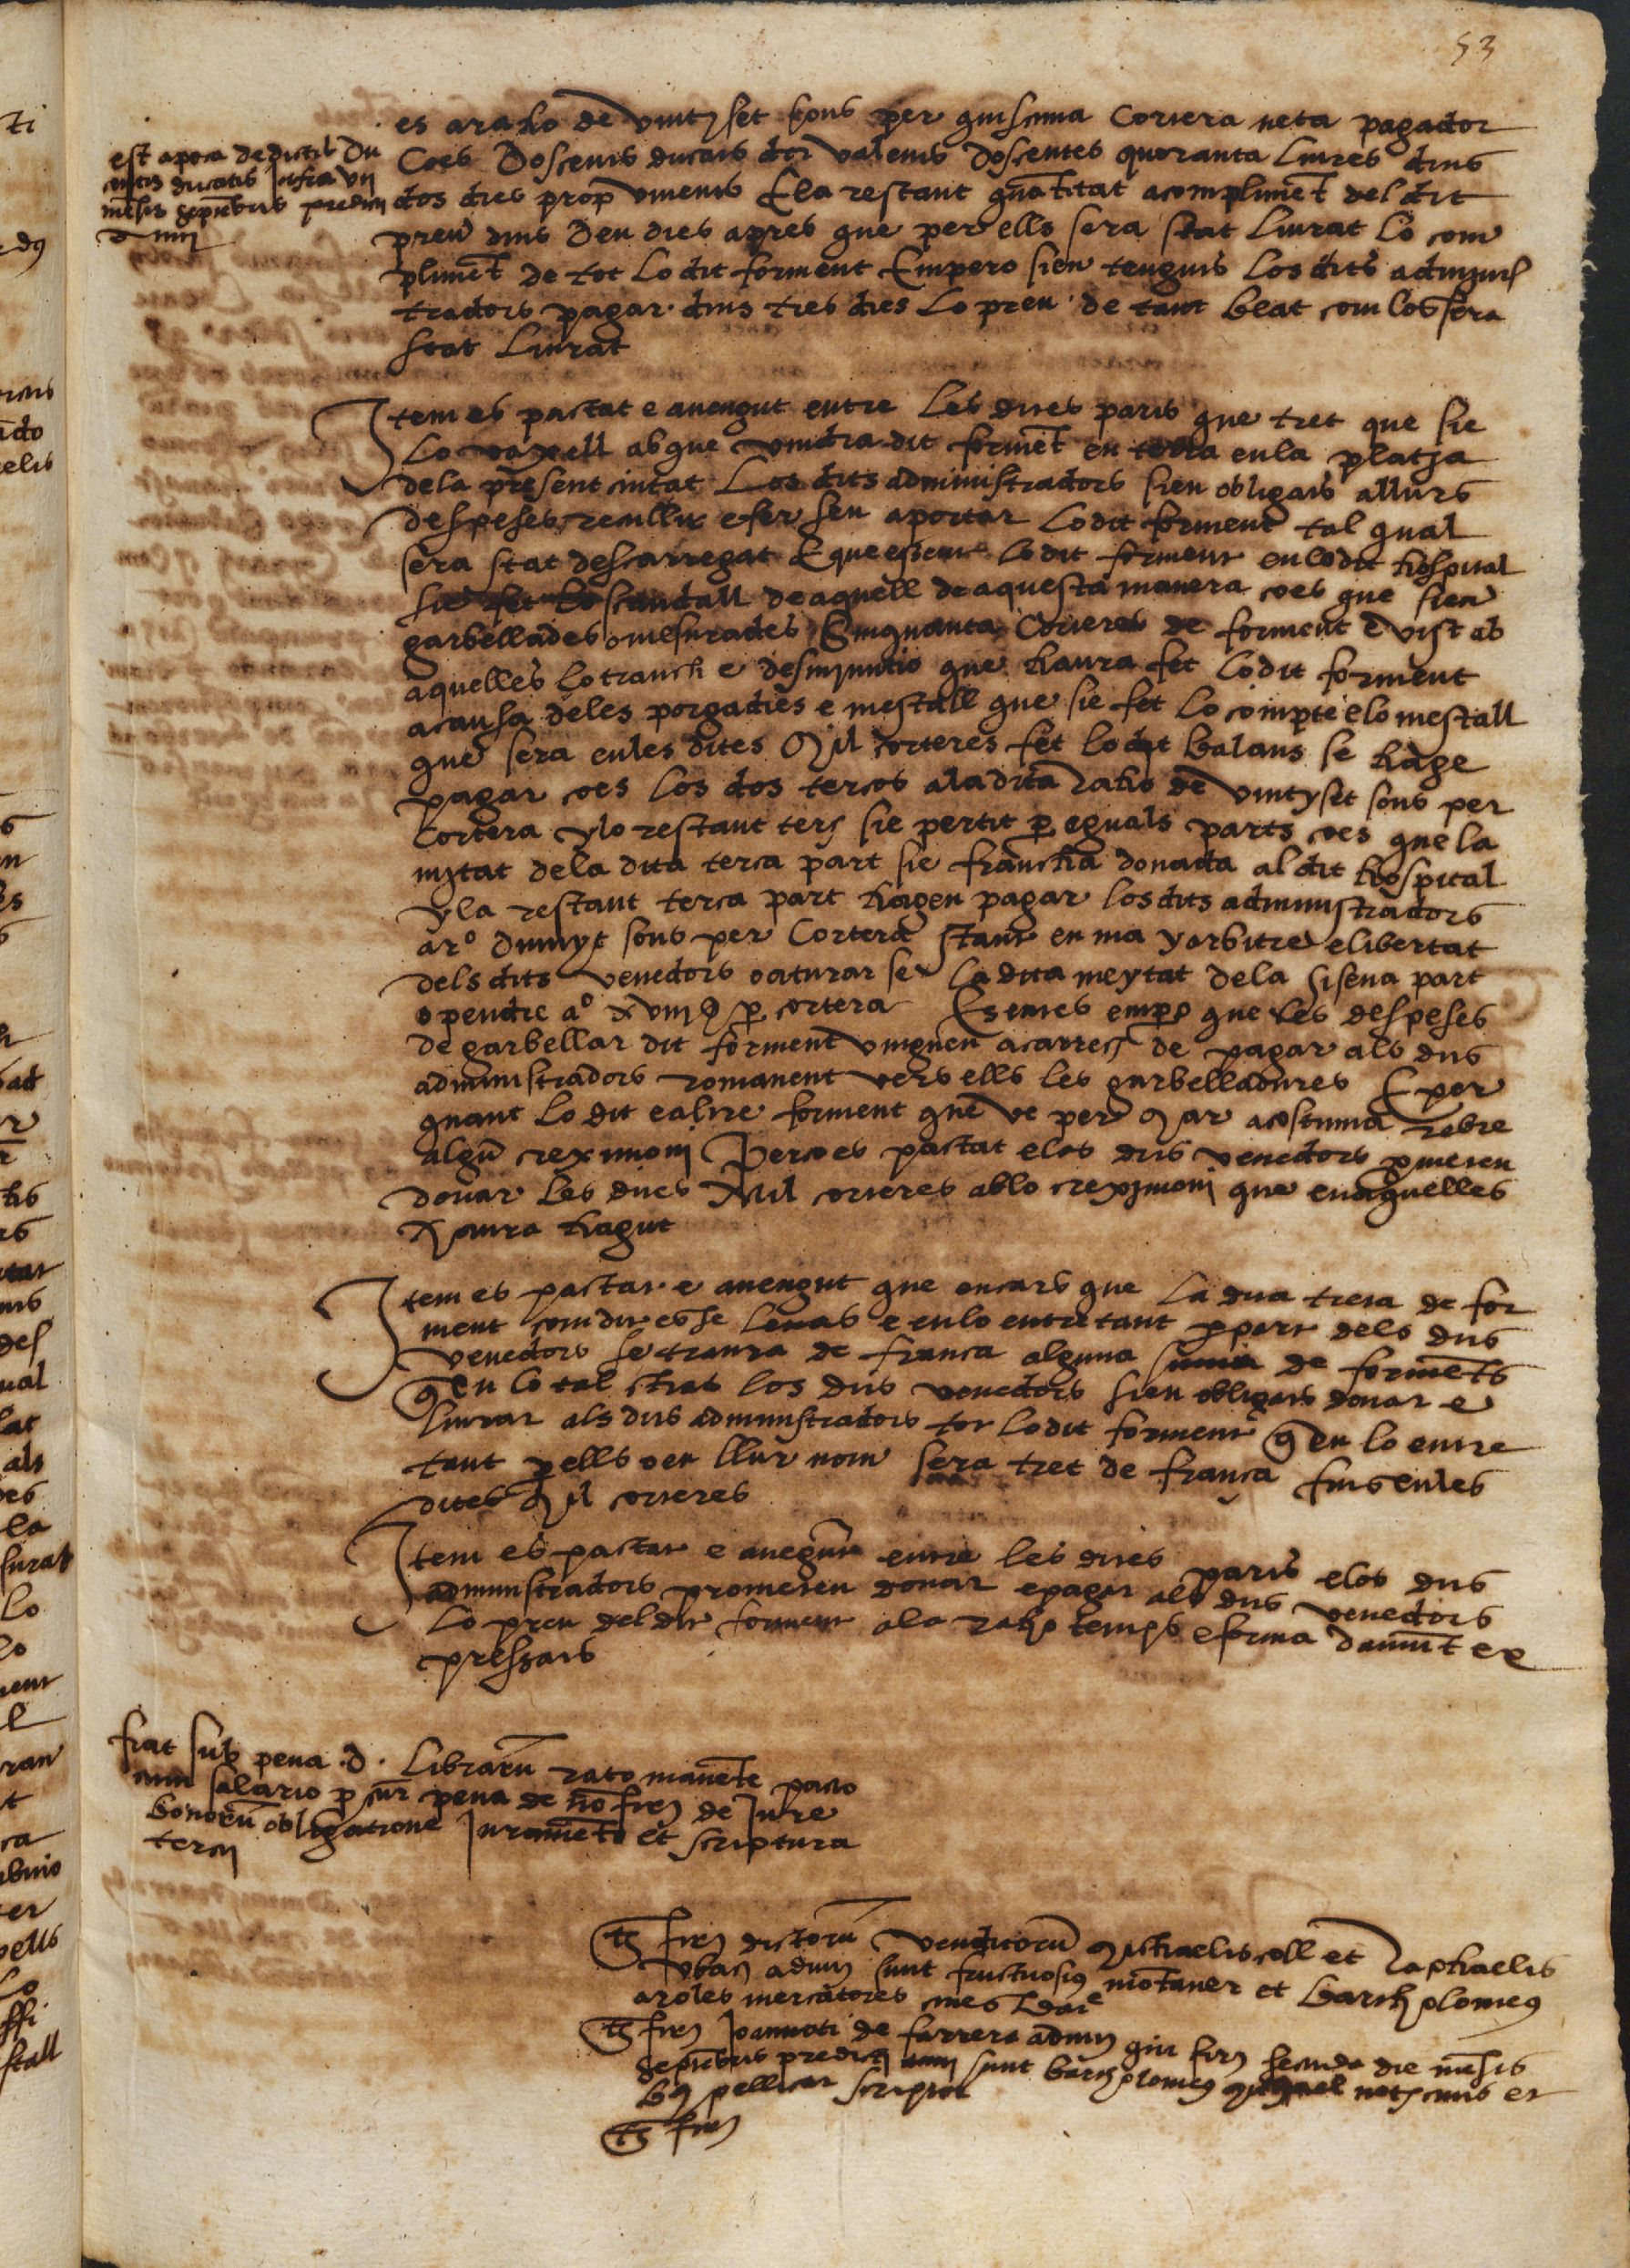 53
est apoca de dictis du
centis ducatis infra vij
mesis septebris predicti
es araho de vint y set sous per quiscuna Cortera neta pagador
Coes Doscents ducats dor valents doscentes quoranta liures dins
dos dies prop vinents E la restant quatitat acomplimet del dit
preu dins Deu dies apres que per ells sera stat liurat lo com
plimet de tot lo dit forment Empero sien tenguts los dits adminis
tradors pagar dins tres dies lo preu de tant blat com los sera
stat liurat
Item es pactat e auengut entre les dites parts que tret que sie
lo vaxell ab que vindra dit formet en terra en la platja
dela present ciutat Los dits administradors sien obligats a llurs
despeses recullir e fer sen aportar lo dit forment tal qual
sera stat descarregat E que essent lo dit forment en lo dit hospital
sie fet lo scandall de aquell de aquesta manera coes que sien
garbellades o mesurades Sinquanta Corteres de forment e vist ab
aquelles lo tranch e desminutio que haura fet lo dit forment
acausa deles porgadies e mestall que sie fet lo compte e lo mestall
que sera en les dites Mil corteres fet lo dit balans se hage
pagar coes los dos tercos ala dita Raho de vint y set sous per
Cortera y lo restant ters sie pertit p eguals parts coes que la
mytat dela dita terca part sie francha donada al dit hospital
y la restant terca part hagen pagar los dits administradors
a ro dimyt sous per Cortera stant en ma y arbitre e libertat
dels dits venedors o aturar se la dita meytat dela sisena part
o pendre a xviij p cortera Es entes empo que les despeses
de garbellar dit forment vinguen acarrech de pagar als dits
administradors romanent vers ells les garbelladures E per
quant lo dit e altre forment que ve per Mar acostuma rebre
algu creximoni Perco es pactat e los dits venedors pmeten
donar les dites Mil corteres ab lo creximoni que en aquelles
haura hagut
Item es pactat e auengut que encars que la dita treta de for
ment com dit es se leuas e en lo entretant p part dels dits
venedors se traura de franca alguna suma de formets
q en lo tal cas los dits venedors sien obligats donar e
liurar als dits administradors tot lo dit forment q en lo entre
tant p ells o en llur nom sera tret de franca fins en les
dites Mil corteres
Item es pactat e auegut entre les dites parts e los dits
administradors prometen donar e pagar als dits venedors
lo preu del dit forment ala raho temps e forma damut ex
pressats
fiat sub pena .d. libraru rato manete pacto
cum salario pcur pena de no fir de Jure
bonoru obligatione Jurameto et scriptura
tercij
ts fir dictoru venditoru Michaelis coll et Raphaelis
sunt fructuosus motaner et Bartholomeus
aroles mercatores ciues
ts fir Joannoti de farrera admi qui fir secunda die mesis
septebris predicti anni sunt Bartholomeus et
pellicer scriptor
ts fir